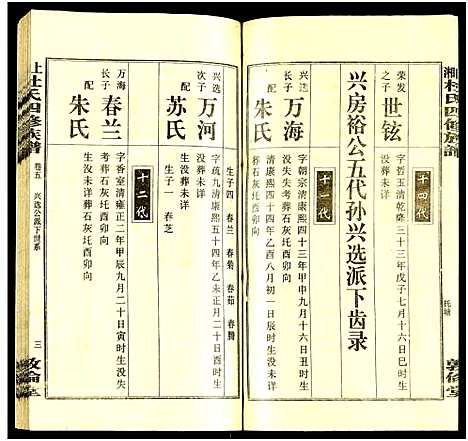 荣发
之子
世铉
字哲玉清乾隆三十三年戊子七月十六日巳时生
没葬未详
十四代
兴房裕公五代孙兴选派下齿录
十一代
兴选
长子
万海
字朝宗清康熙四十三年甲申九月十六日
没失失考葬石灰圫酉卯向
配
朱氏
清康熙四十四年乙酉八月初一日辰时生
没葬未详
兴选
次子
万河
字疏九清康熙五十四年乙未正月二十日
没葬未详
配
苏氏
生没未详
生子一 春芝
生子四 春兰 春菊 春茹 春鹏
十二代
万海
长子
春兰
字香室清雍正二年甲辰九月二十日寅时生没失
考葬石灰圫酉卯向
配
朱氏
生没未详葬石灰圫酉卯向
杜氏四修族谱
卷五 兴选公派下世系
三
敦伦堂